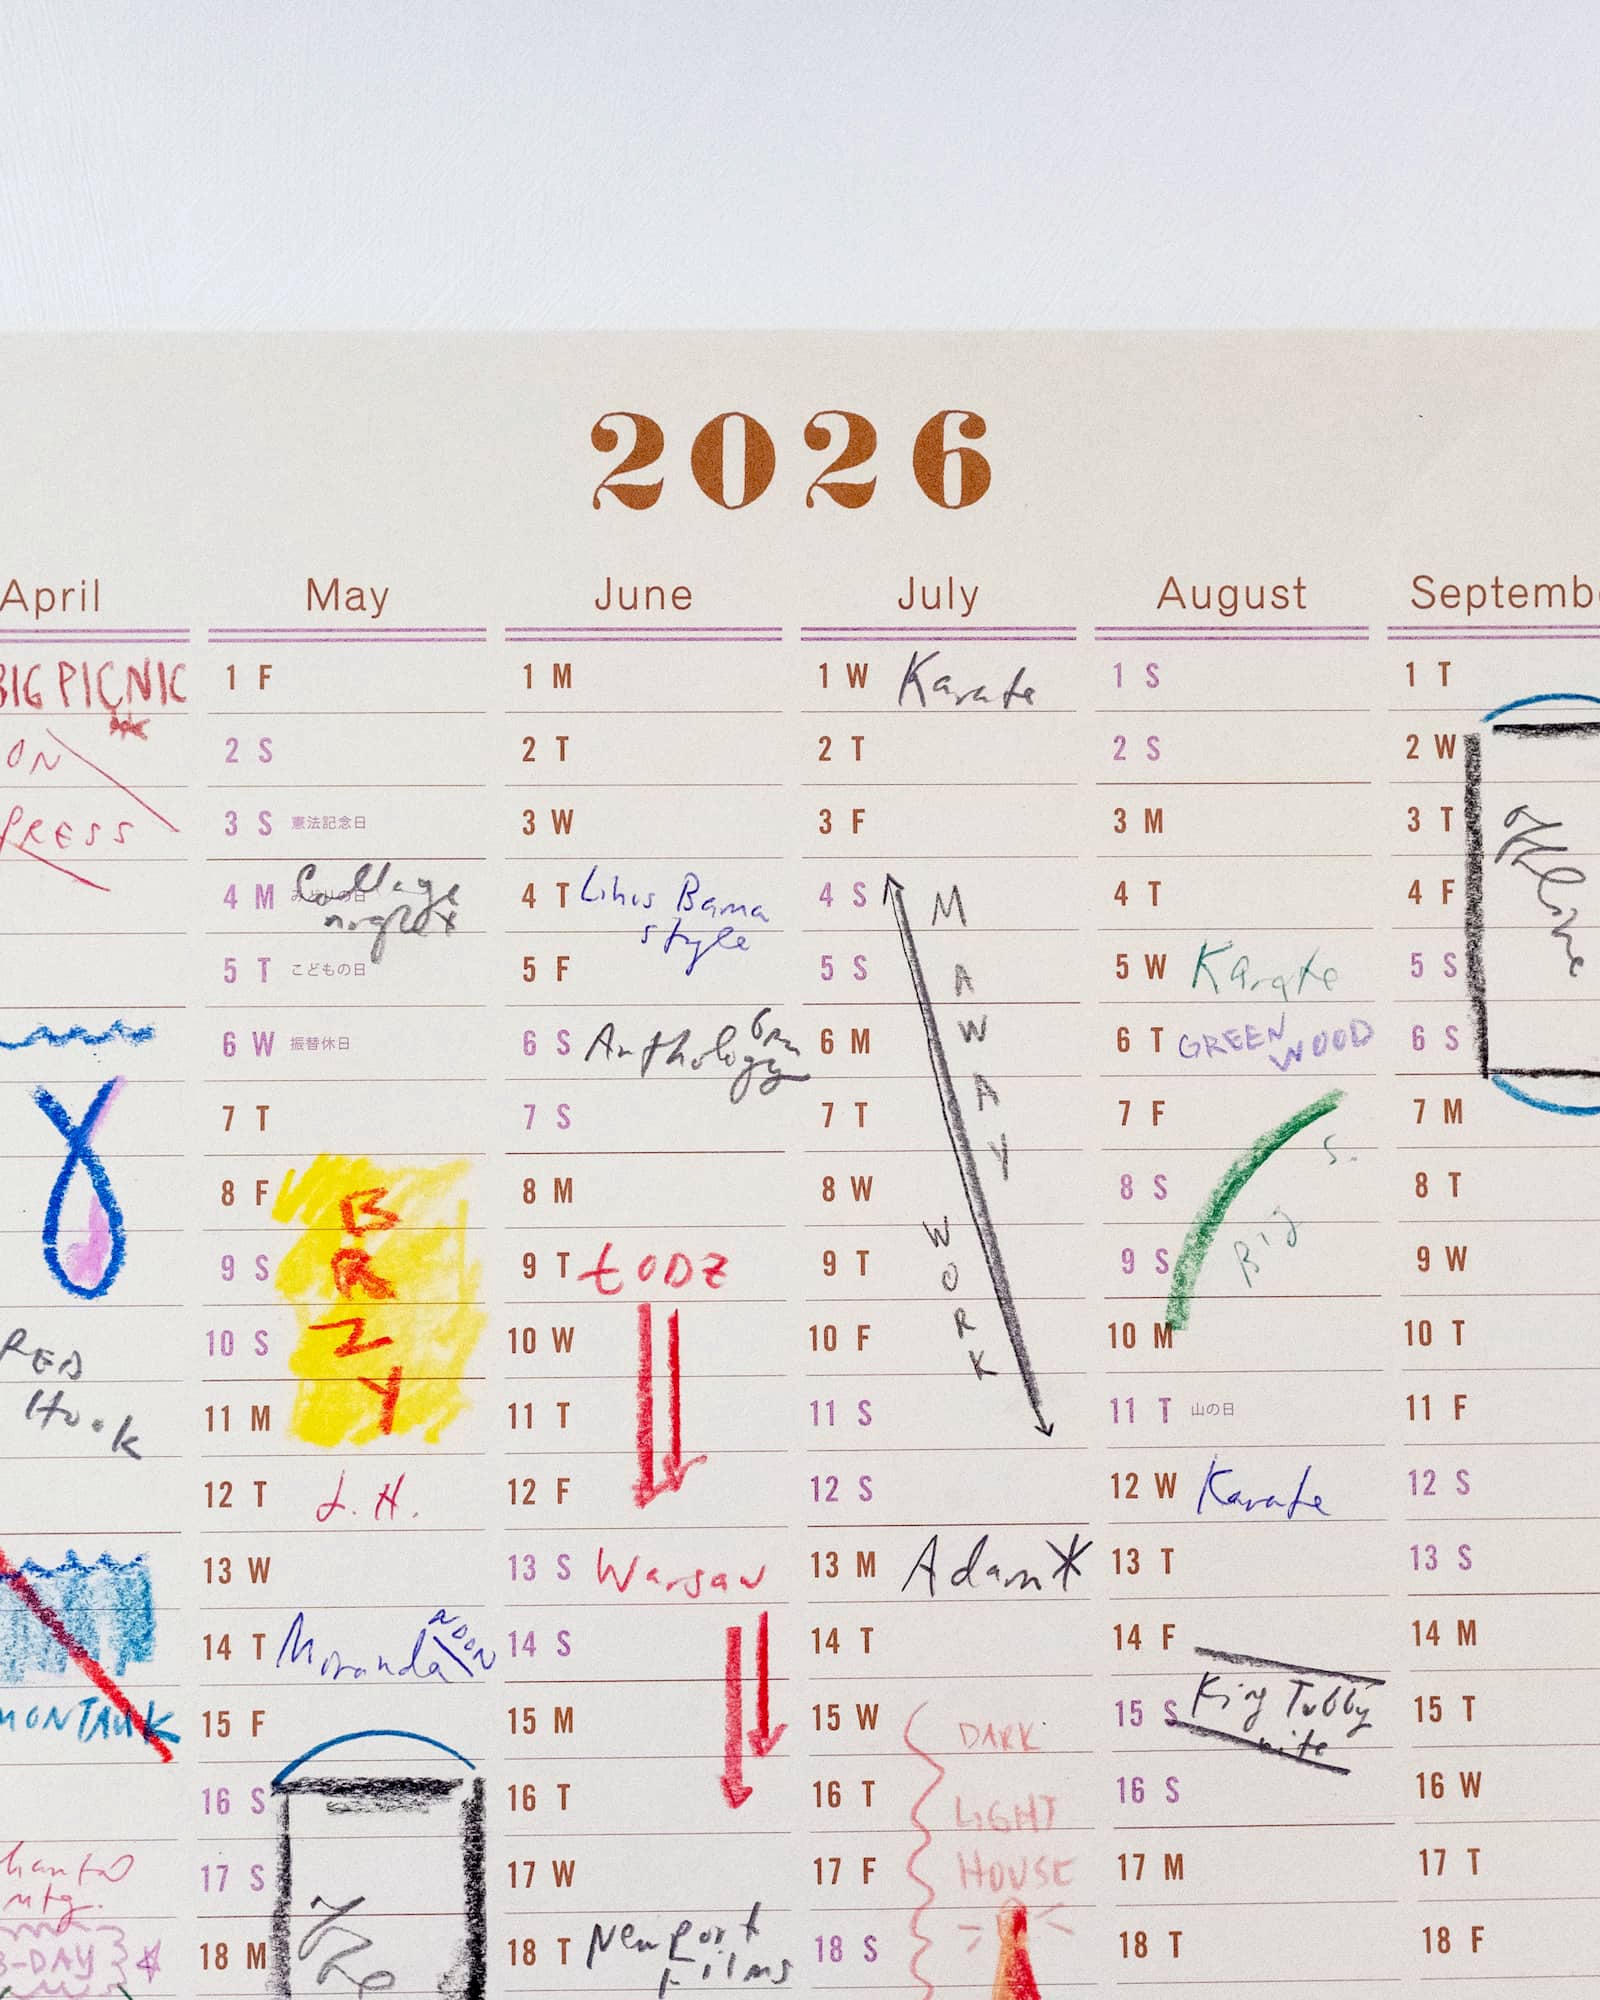 2026
April
May
June
July
August
Septemb
BIG PICNIC
ON
PRESS
RED
Hook
MONTAUK
mtg.
B-DAY
1 F
2 S
3 S 憲法記念日
4 M Collage
5 T こどもの日
6 W 振替休日
7 T
8 F B
9 S R
10 S Z
11 M Y
12 T L.H.
13 W
14 T NOON
15 F
16 S
17 S
18 M
1 M
2 T
3 W
4 T Bama
style
5 F
6 S Anthology 6pm
7 S
8 M
9 T ŁODZ
10 W
11 T
12 F
13 S Warsaw
14 S
15 M
16 T
17 W
18 T Newport
Films
1 W Karate
2 T
3 F
4 S M
5 S A
6 M W
7 T A
Y
8 W W
9 T O
10 F R
K
11 S
12 S
13 M Adam*
14 T
15 W DARK
16 T LIGHT
17 F HOUSE
18 S
1 S
2 S
3 M
4 T
5 W Karate
6 T GREEN
WOOD
7 F S.
8 S
9 S Big
10 M
11 T 山の日
12 W Karate
13 T
14 F
15 S King Tubby
nite
16 S
17 M
18 T
1 T
2 W
3 T
4 F
5 S
6 S
7 M
8 T
9 W
10 T
11 F
12 S
13 S
14 M
15 T
16 W
17 T
18 F